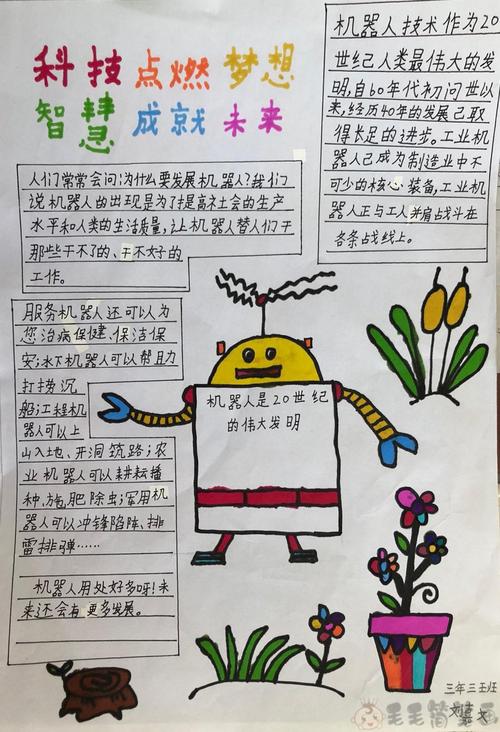 科技点燃梦想
智慧成就未来
机器人技术作为20
世纪人类最伟大的发
明,自60年代初问世以
来,经历40年的发展已取
得长足的进步。工业机
器人已成为制造业中不
可少的核心装备,工业机
器人正与工人并肩战斗在
各条战线上。
人们常常会问:为什么要发展机器人?我们
说机器人的出现是为了提高社会的生产
水平和人类的生活质量,让机器人替人们干
那些干不了的、干不好的
工作。
服务机器人还可以为
您治病保健、保洁保
安;水下机器人可以帮助
打捞沉
船;工程机
器人可以上
山入地、开洞筑路;农
业机器人可以耕耘播
种,施肥除虫;军用机
器人可以冲锋陷阵、排
雷排弹……
机器人用处好多呀!未
来还会有更多发展。
机器人是20世纪
的伟大发明
三年三班
毛毛简笔画